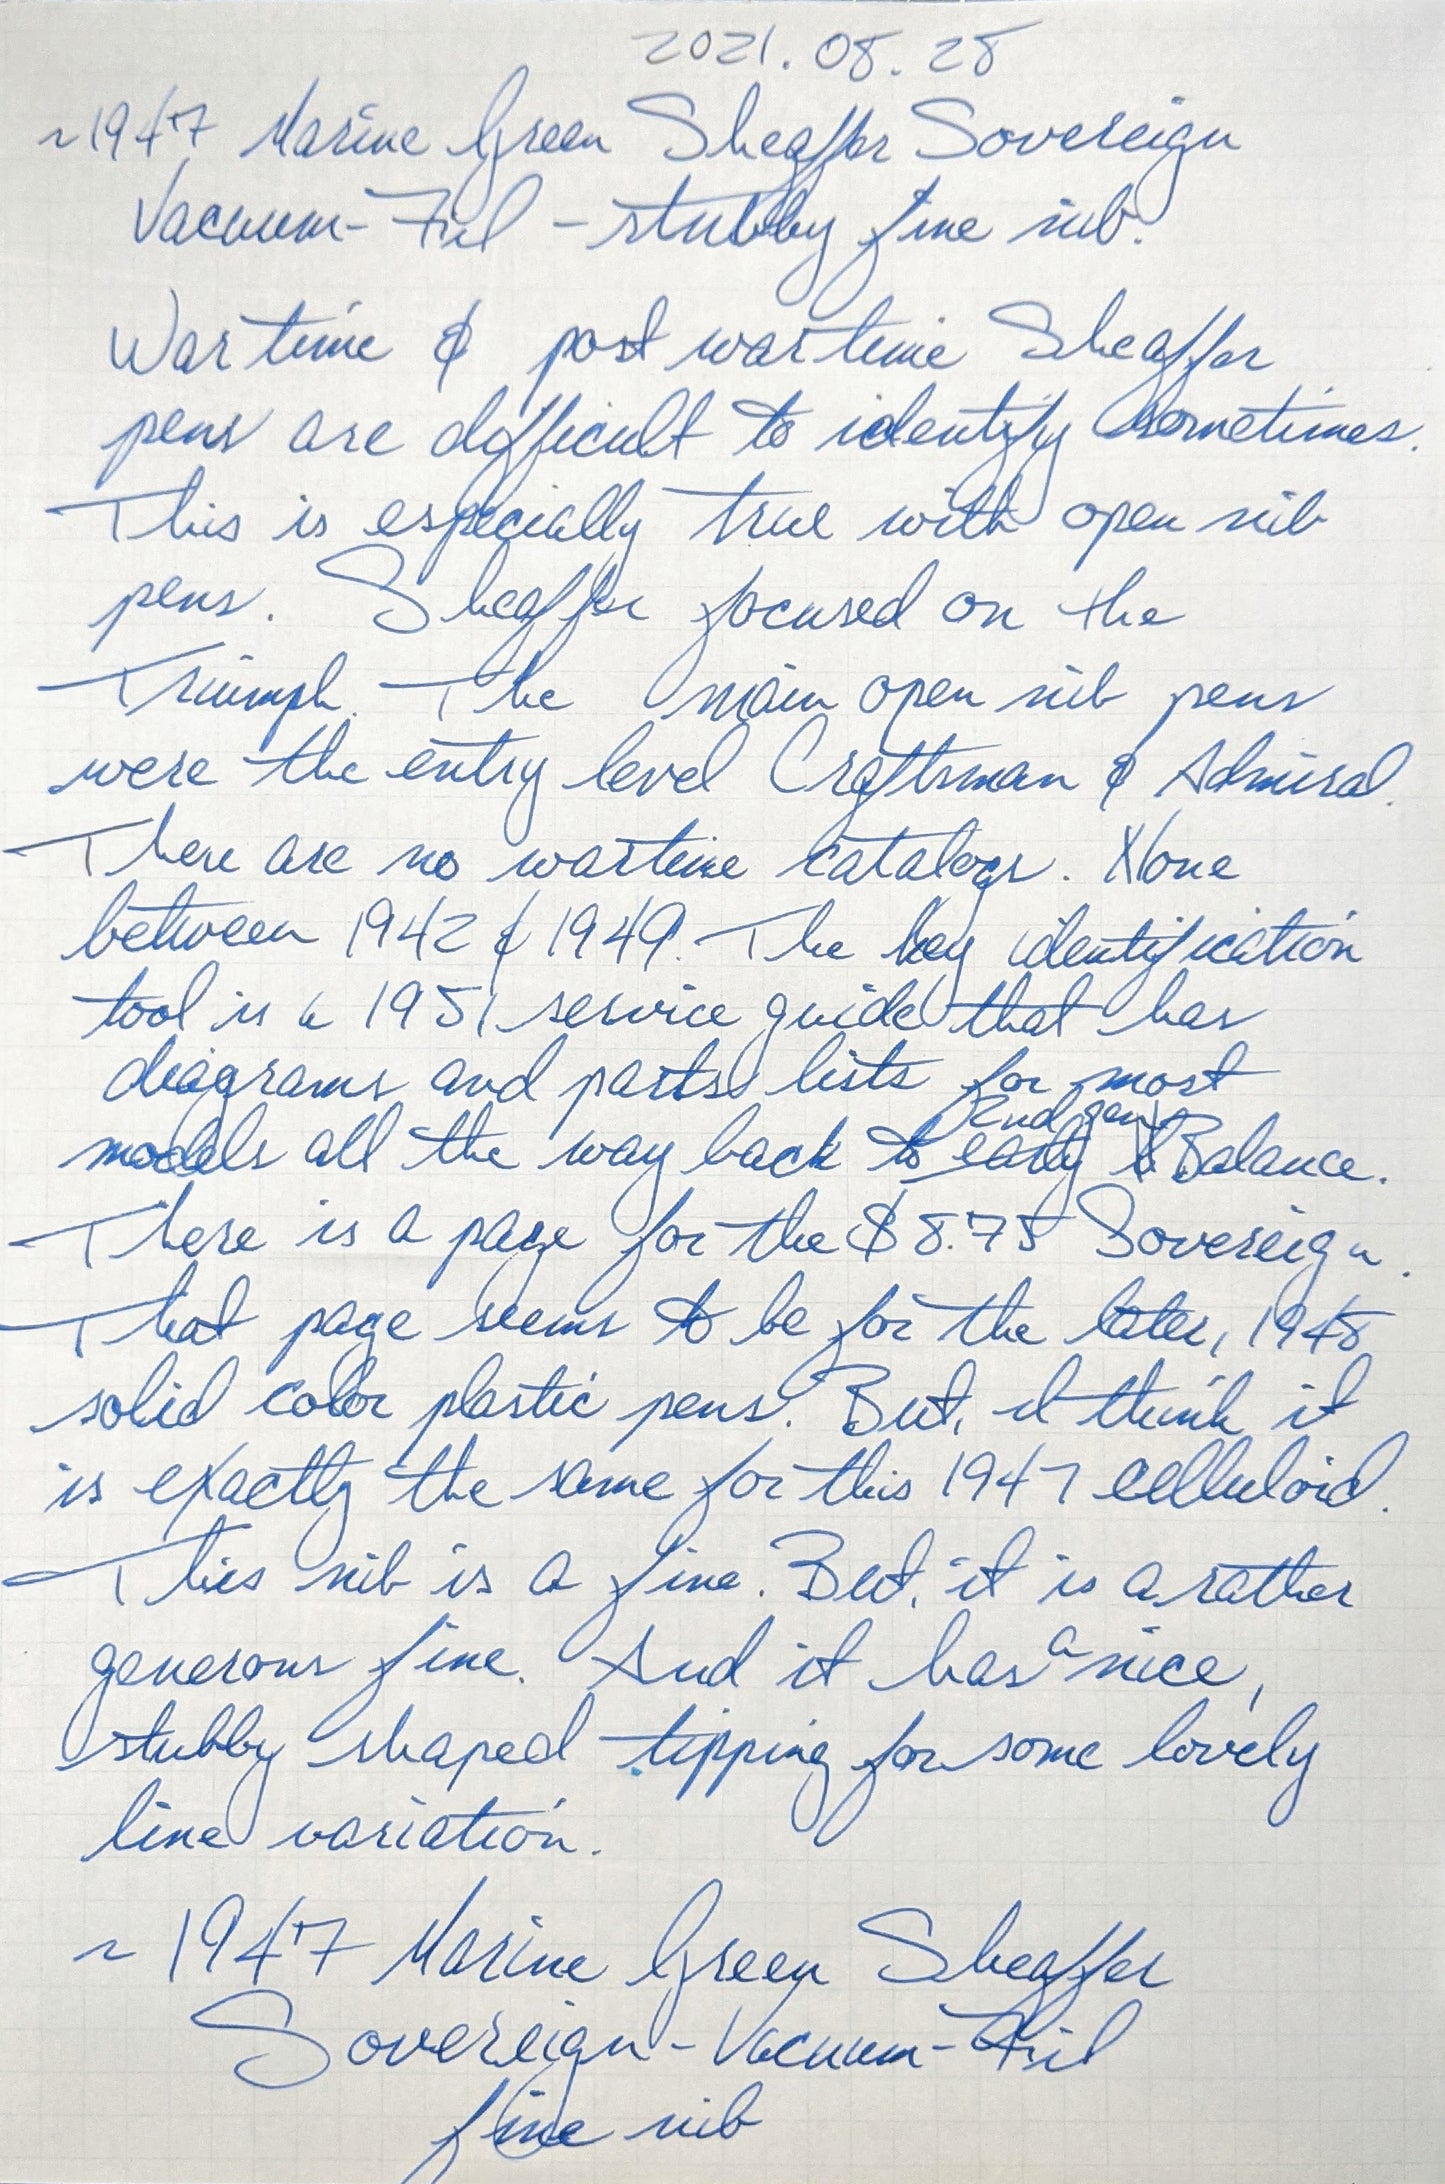 2021.08.28
~1947 Marine Green Sheaffer Sovereign
Vacuum-Fil - stubby fine nib.
Wartime & post wartime Sheaffer
pens are difficult to identify sometimes.
This is especially true with open nib
pens. Sheaffer focused on the
Triumph. The main open nib pens
were the entry level Craftsman & Admiral.
There are no wartime catalogs. None
between 1942 & 1949. The key identification
tool is a 1951 service guide that has
diagrams and parts lists for most
2nd gen
models all the way back to early Balance.
There is a page for the $8.75 Sovereign.
That page seems to be for the later, 1948
solid color plastic pens. But, I think it
is exactly the same for this 1947 celluloid.
This nib is a fine. But, it is a rather
generous fine. And it has a nice,
stubby shaped tipping for some lovely
line variation.
~ 1947 Marine Green Sheaffer
Sovereign - Vacuum-Fil
fine nib